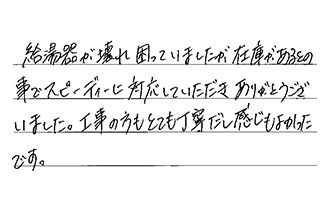 給湯器が壊れ困っていましたが在庫があるとの
事でスピーディーに対応していただきありがとうござ
いました。工事の方もとても丁寧だし感じもよかった
です。